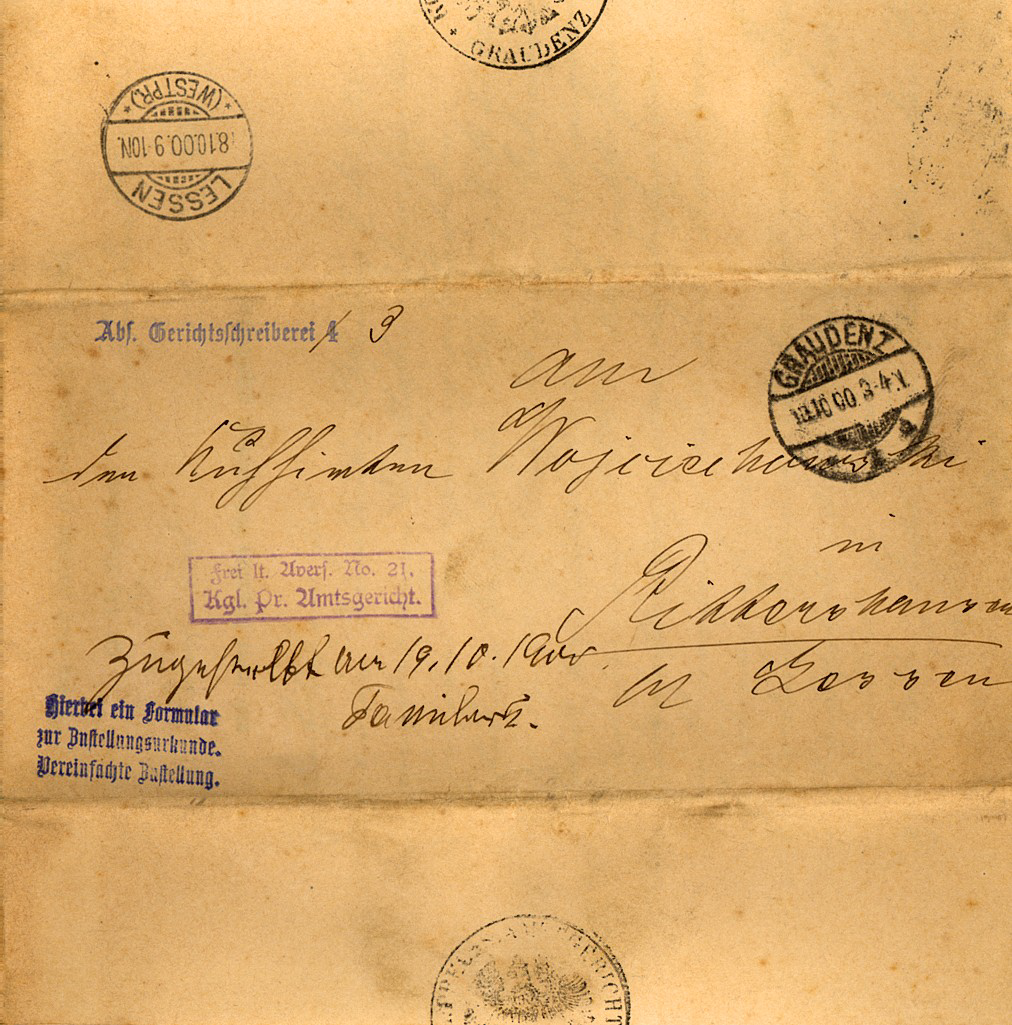 GRAUDENZ
(WESTPR.)
18.10.00.9-10N.
LESSEN
Abs. Gerichtsschreiberei 4 3
An
GRAUDENZ
18.10.00.3-4N.
den Wojciechowski
in
Frei lt. Avers. No. 21.
Kgl. Pr. Amtsgericht.
Rittershausen
Zugestellt am 19.10.1900
Lessen
Hierbei ein Formular
zur Zustellungsurkunde.
Vereinfachte Zustellung.
AMTSGERICHT